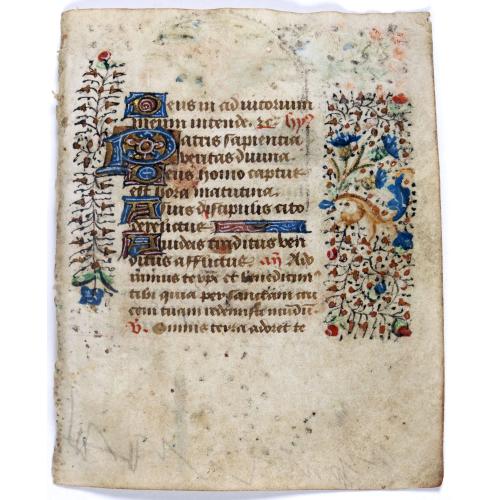 Deus in adiutorium
meum intende. ℞ hỹs
Patris sapientia
veritas divina
Deus homo captus
est hora matutina
A suis discipulis cito
derelictus
Iudeis traditus ven
ditus afflictus añ Ado
ramus te xpe et benedicim'
tibi quia per sanctam cru
cem tuam redemisti mūdū
V. Omnis terra adoret te